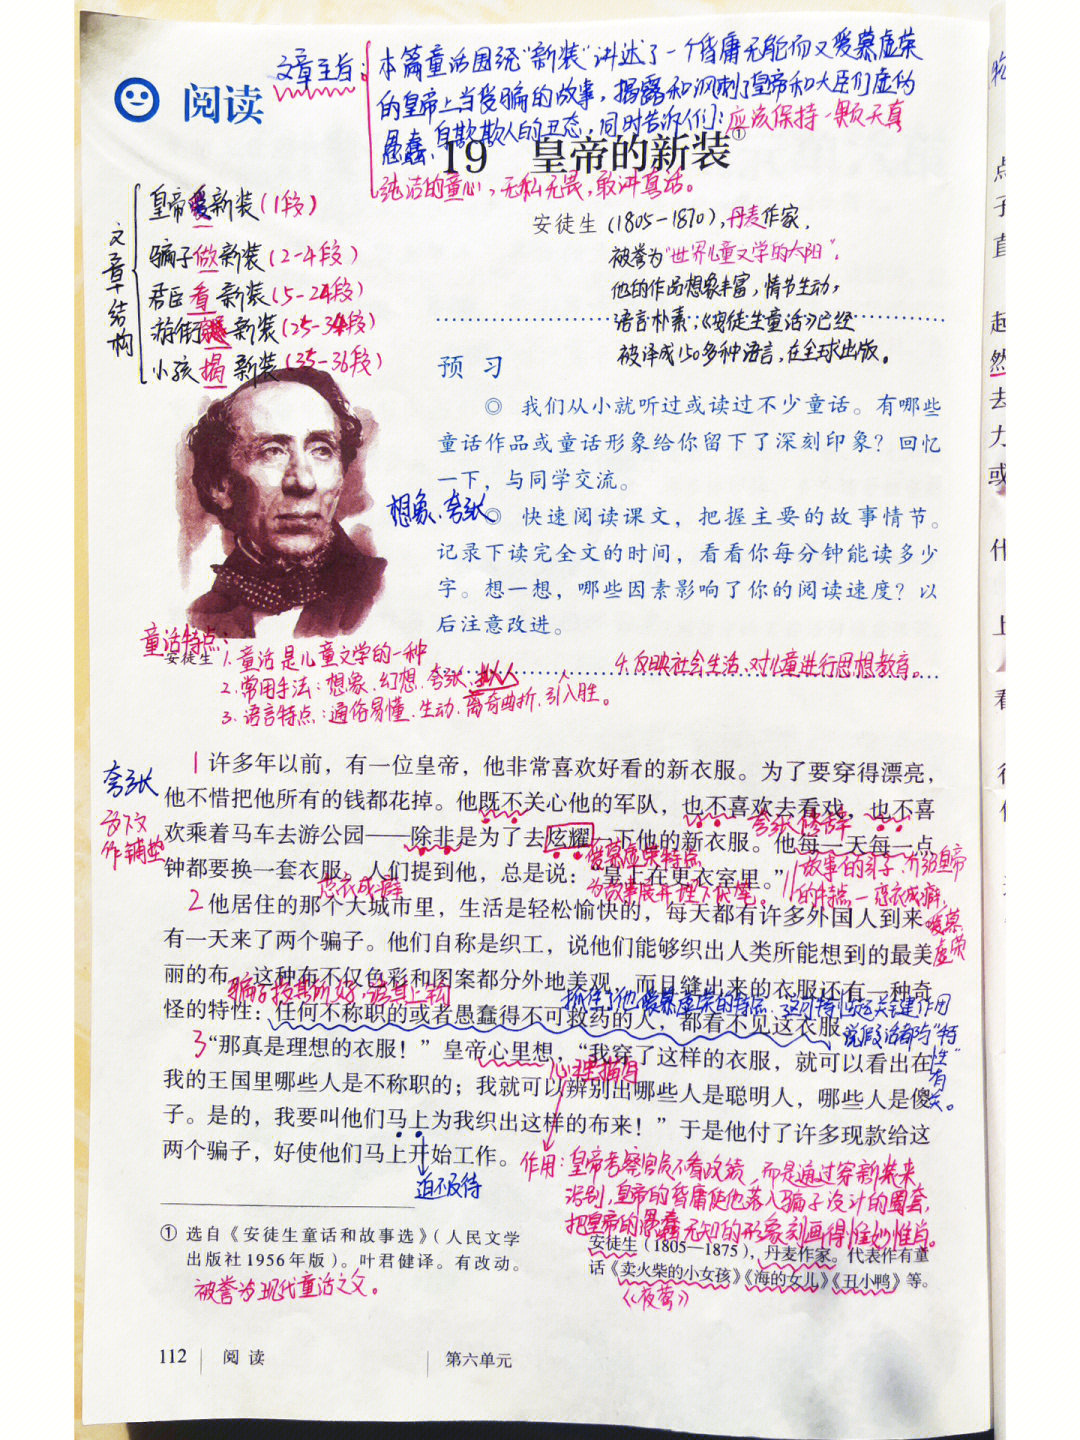 文章主旨：本篇童话围绕"新装"讲述了一个昏庸无能而又爱慕虚荣
的皇帝上当受骗的故事，揭露和讽刺了皇帝和大臣们虚伪
愚蠢、自欺欺人的丑态，同时告诉人们：应该保持一颗天真
纯洁的童心，无私无畏，敢讲真话。
阅读
19 皇帝的新装①
安徒生(1805-1870),丹麦作家,
被誉为"世界儿童文学的太阳".
他的作品想象丰富,情节生动,
语言朴素;《安徒生童话》已经
被译成150多种语言,在全球出版。
文章结构
皇帝爱新装(1段)
骗子做新装(2-4段)
君臣看新装(5-24段)
游街展新装(25-34段)
小孩揭新装(35-36段)
预习
◎ 我们从小就听过或读过不少童话。有哪些
童话作品或童话形象给你留下了深刻印象？回忆
一下，与同学交流。
想象、夸张
◎ 快速阅读课文，把握主要的故事情节。
记录下读完全文的时间，看看你每分钟能读多少
字。想一想，哪些因素影响了你的阅读速度？以
后注意改进。
安徒生
童话特点:
1.童话是儿童文学的一种
2.常用手法:想象、幻想、夸张、拟人
3.语言特点:通俗易懂、生动、离奇曲折、引人入胜。
4.反映社会生活、对儿童进行思想教育。
夸张
为下文
作铺垫
1许多年以前，有一位皇帝，他非常喜欢好看的新衣服。为了要穿得漂亮，
他不惜把他所有的钱都花掉。他既不关心他的军队，也不喜欢去看戏，也不喜
夸张修辞
欢乘着马车去游公园——除非是为了去炫耀一下他的新衣服。他每一天每一点
爱慕虚荣特点
为故事展开埋下伏笔。
钟都要换一套衣服。人们提到他，总是说："皇上在更衣室里。"
恋衣成癖
故事的引子:介绍皇帝
的特点—恋衣成癖,
爱慕
虚荣
2他居住的那个大城市里，生活是轻松愉快的，每天都有许多外国人到来。
有一天来了两个骗子。他们自称是织工，说他们能够织出人类所能想到的最美
丽的布。这种布不仅色彩和图案都分外地美观，而且缝出来的衣服还有一种奇
骗子投其所好,诱其上钩
抓住了他爱慕虚荣的特点,这可特性起关键作用
说假话都与"特
性"
有
关。
怪的特性：任何不称职的或者愚蠢得不可救药的人，都看不见这衣服。
3"那真是理想的衣服！"皇帝心里想，"我穿了这样的衣服，就可以看出在
心理描写
我的王国里哪些人是不称职的；我就可以辨别出哪些人是聪明人，哪些人是傻
子。是的，我要叫他们马上为我织出这样的布来！"于是他付了许多现款给这
两个骗子，好使他们马上开始工作。
迫不及待
作用:皇帝考察官员不看政绩,而是通过穿新装来
识别,皇帝的昏庸使他落入骗子设计的圈套,
把皇帝的愚蠢无知的形象刻画得惟妙惟肖。
① 选自《安徒生童话和故事选》（人民文学
出版社1956年版）。叶君健译。有改动。
安徒生（1805—1875），丹麦作家。代表作有童
话《卖火柴的小女孩》《海的女儿》《丑小鸭》等。
《夜莺》
被誉为现代童话之父。
112 阅读 第六单元